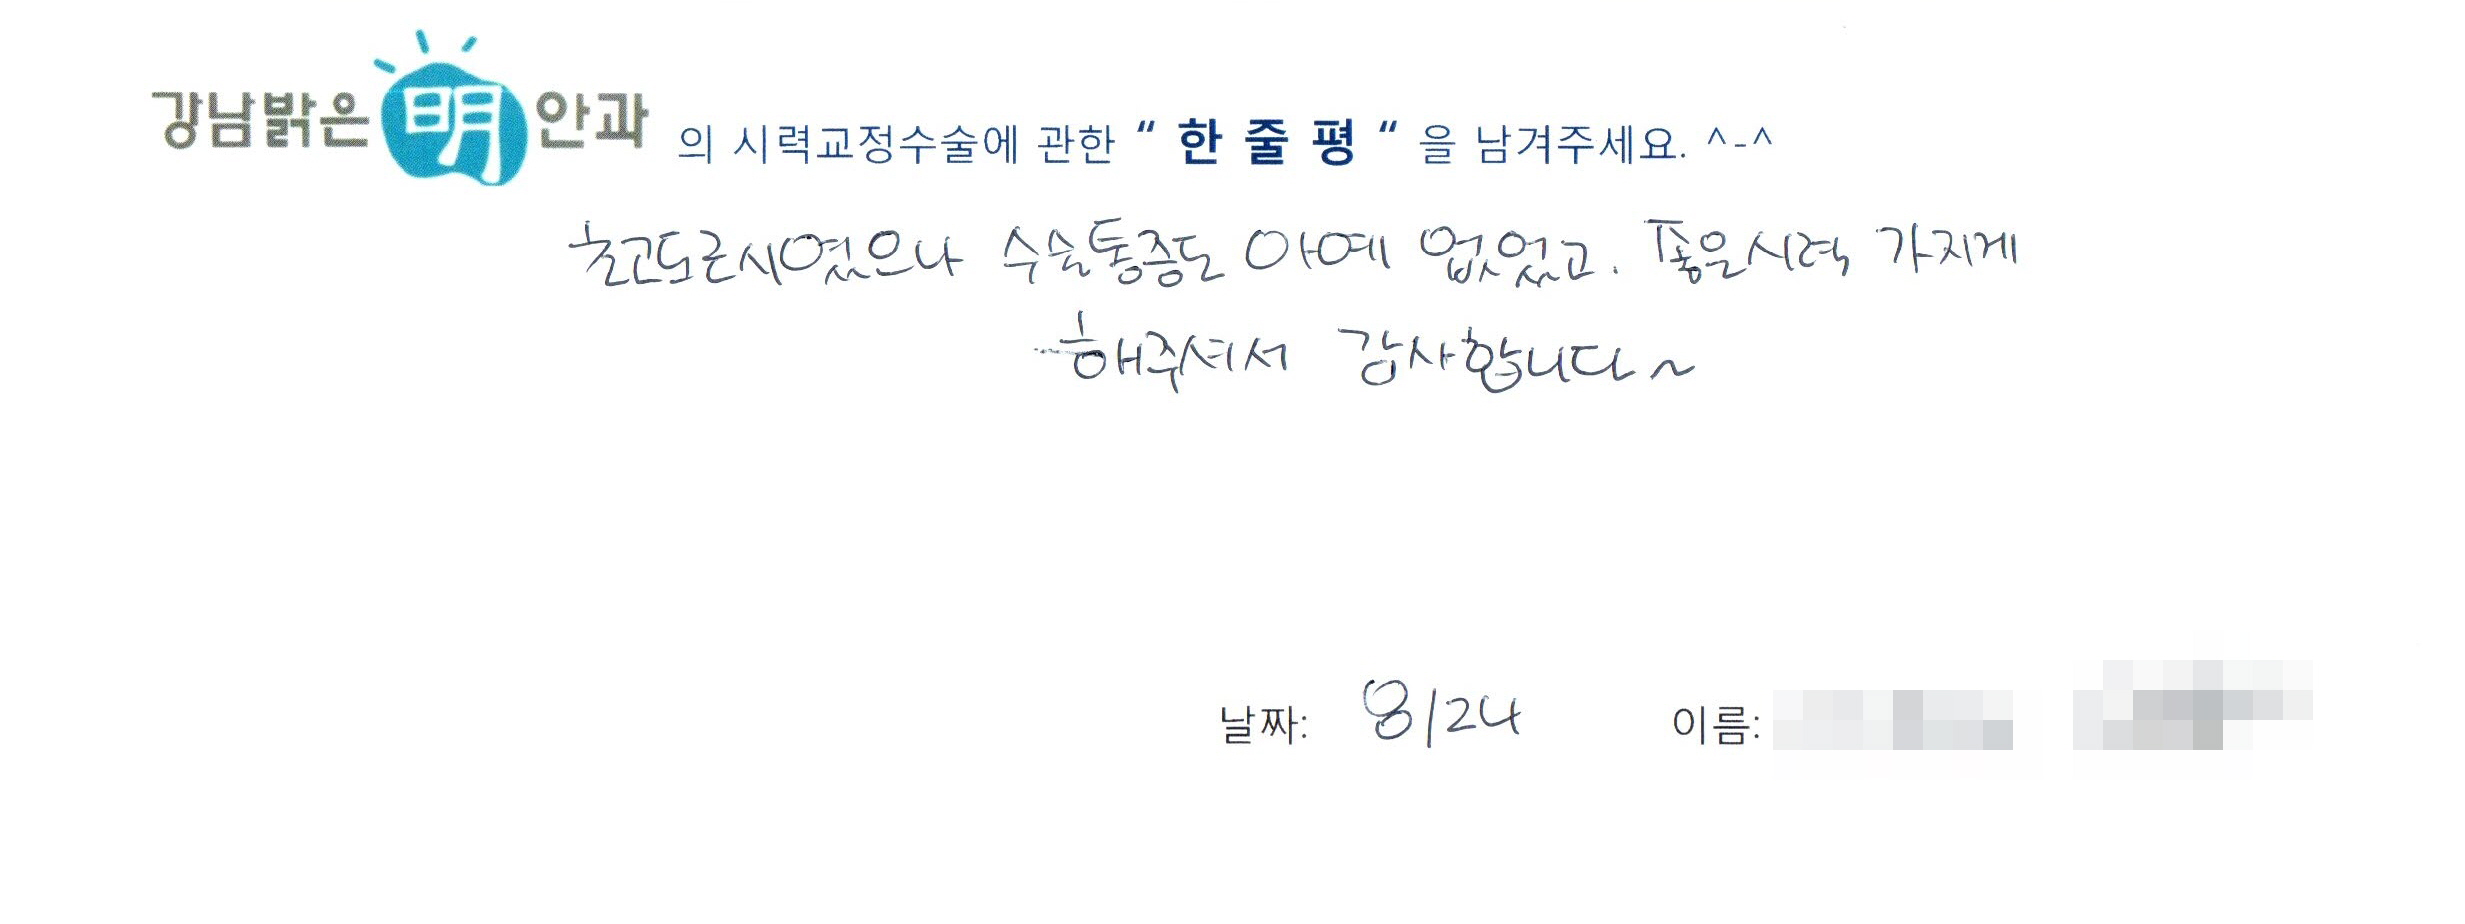 강남밝은 明 안과 의 시력교정수술에 관한 “ 한 줄 평 “ 을 남겨주세요. ^-^
초고도근시였으나 수술통증도 아예 없었고. 좋은시력 가지게
해주셔서 감사합니다~
날짜: 8/24 이름: